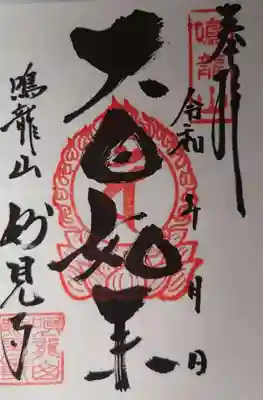 奉拝
鳴龍山
令和 年 月 日
大日如来
鳴龍山
妙見寺